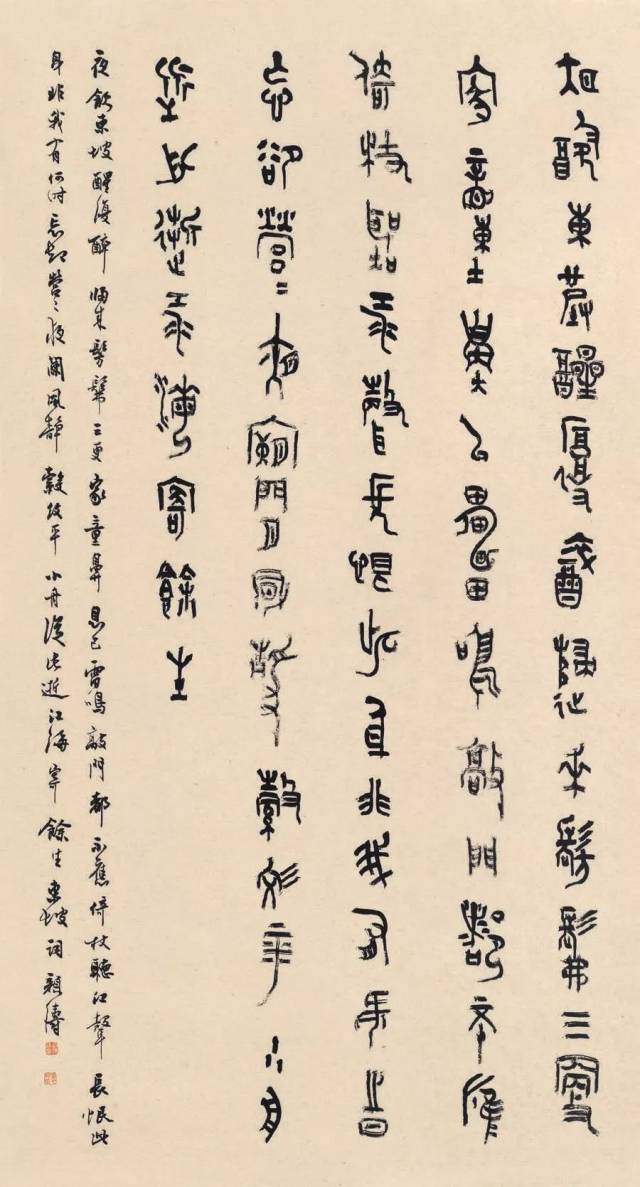 夜飲東坡醒復醉歸來髣髴三更
家童鼻息已雷鳴敲門都不應
倚杖聽江聲長恨此身非我有何時
忘卻營〻夜闌風靜縠紋平小舟
從此逝江海寄餘生
夜飲東坡醒復醉歸來髣髴三更家童鼻息已雷鳴敲門都不應倚杖聽江聲長恨此
身非我有何時忘卻營〻夜闌風靜縠紋平小舟從此逝江海寄餘生東坡詞